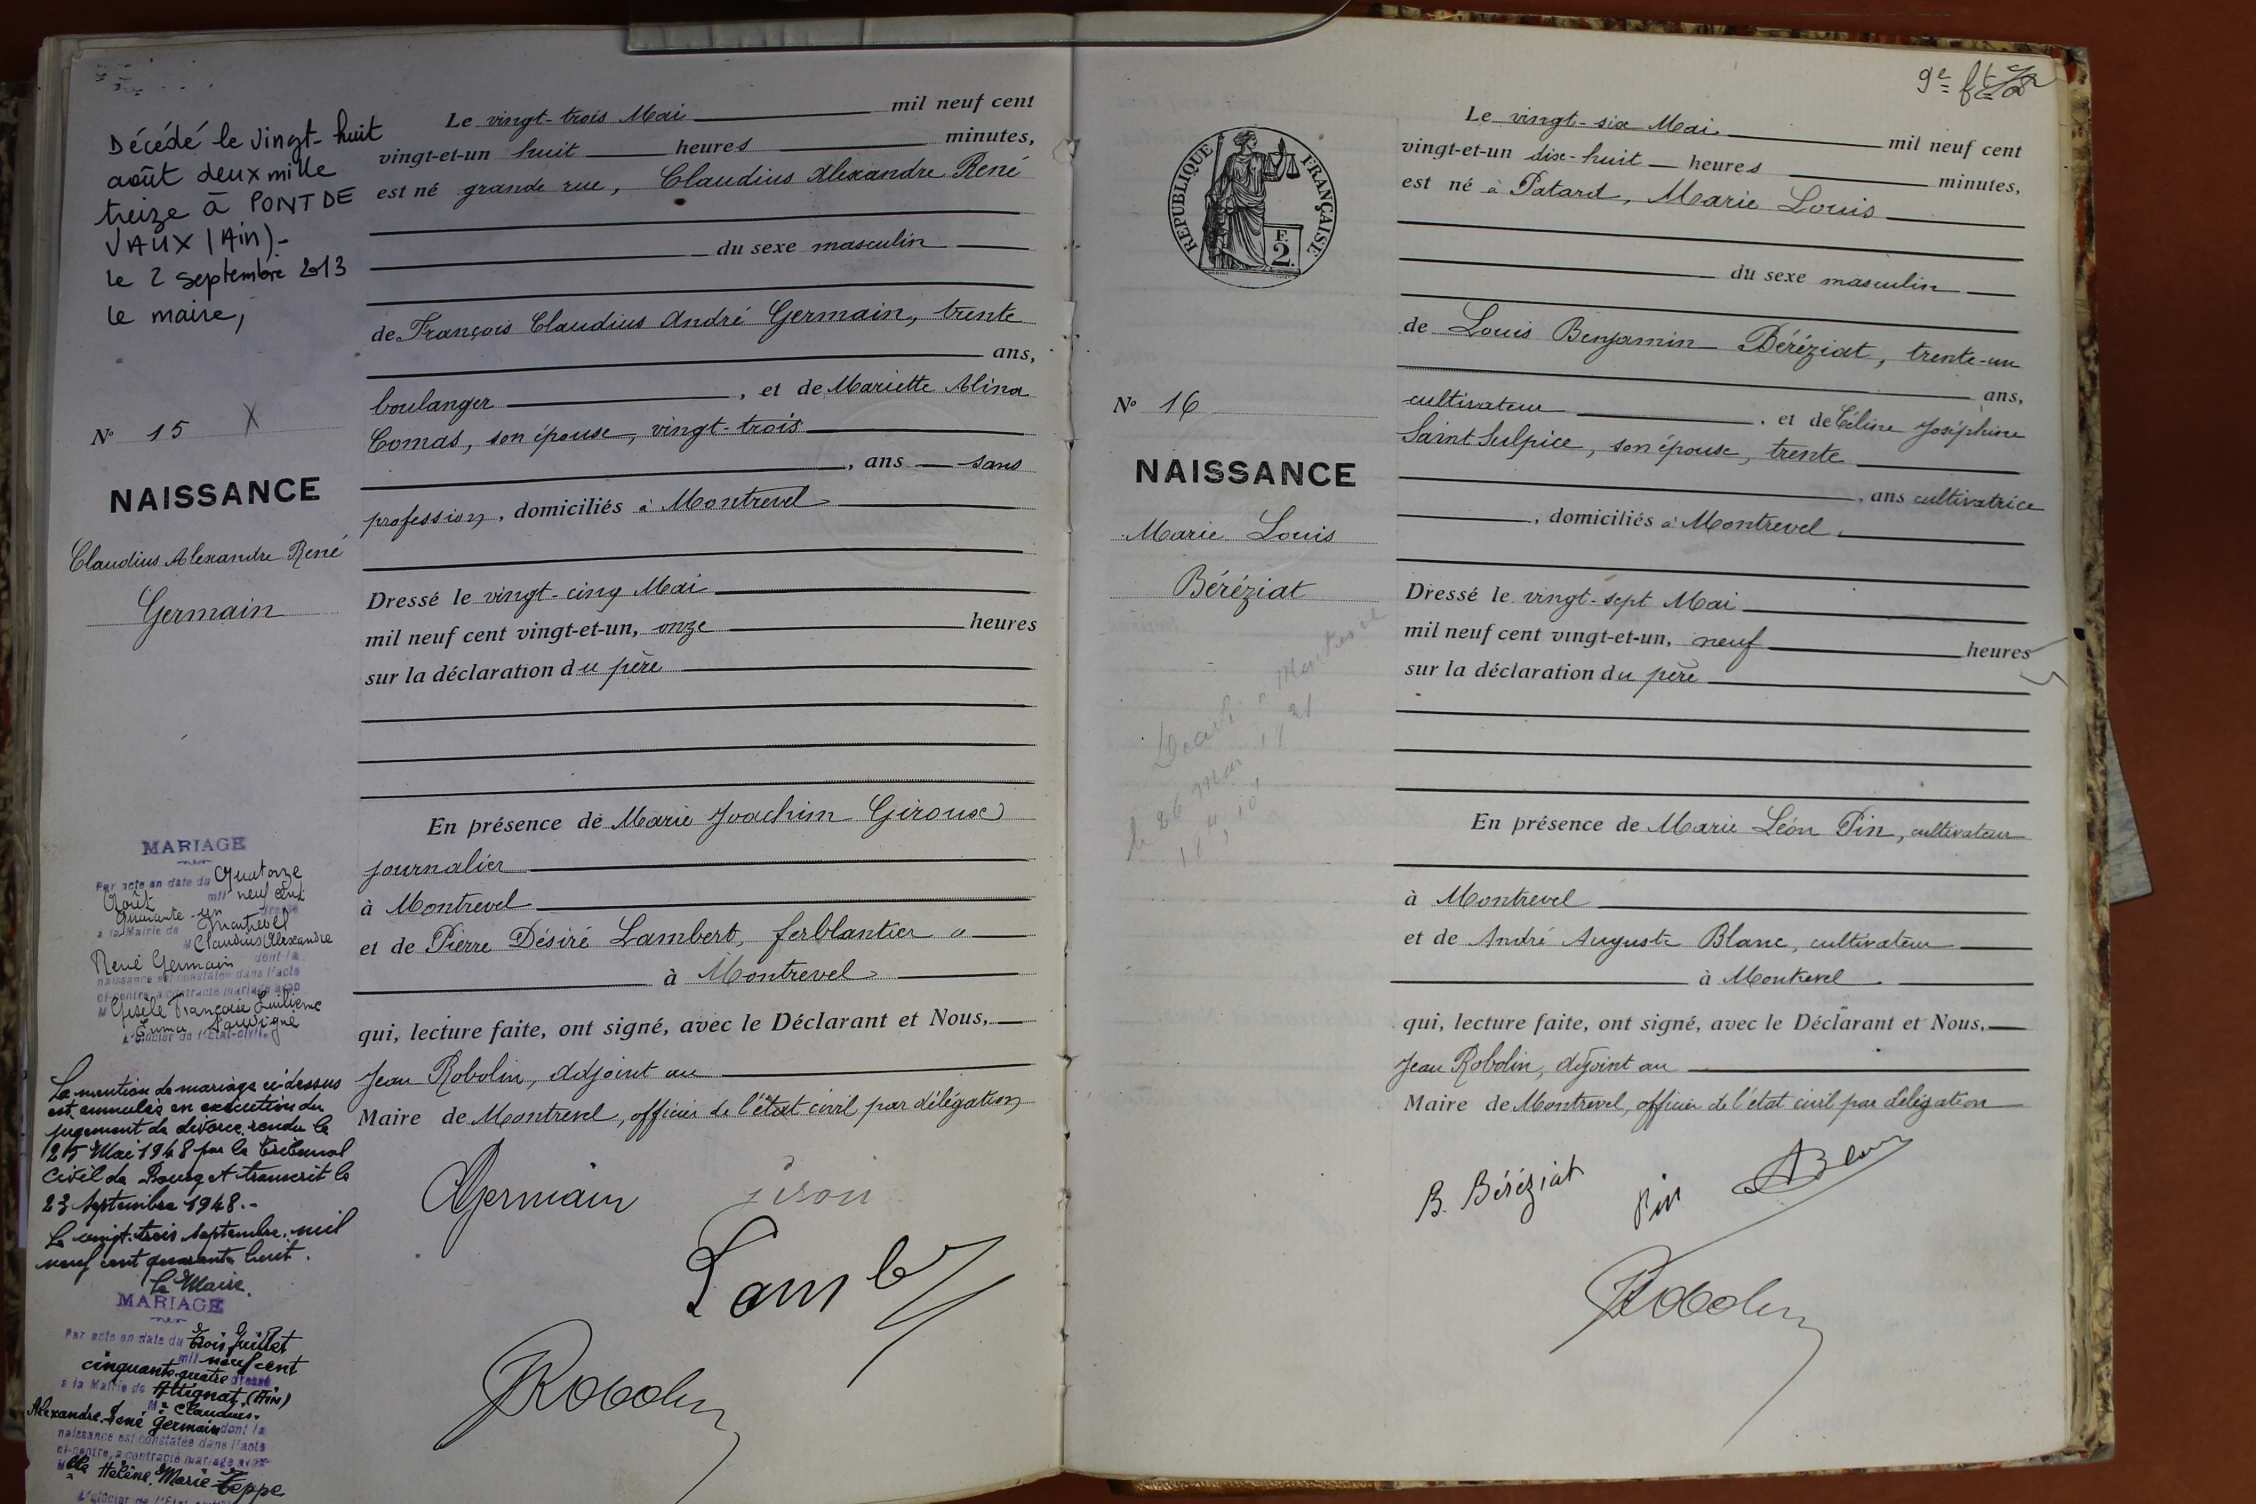 Décédé le vingt-huit
août deux mille
treize à PONT DE
VAUX (Ain)-
le 2 septembre 2013
le maire,
N° 15 X
NAISSANCE
Claudius Alexandre René
Germain
MARIAGE
Par acte en date du Quatorze
Août mil neuf cent
quarante-un dressé
à la Mairie de Montrevel
M Claudius Alexandre
René Germain dont la
naissance est constatée dans l'acte
ci-contre, a contracté mariage avec
M Gisèle Françoise
Emma
L'Officier de l'Etat-civil.
La mention de mariage ci-dessus
est annulée en exécution du
jugement de divorce rendu le
25 Mai 1948 par le Tribunal
Civil de Bourg et transcrit le
23 Septembre 1948.-
Le vingt-trois septembre mil
neuf cent quarante huit.
Le Maire.
MARIAGE
Par acte en date du trois Juillet
mil neuf cent
cinquante quatre dressé
à la Mairie de Attignat (Ain)
Mr Claudius
Alexandre René Germain dont la
naissance est constatée dans l'acte
ci-contre, a contracté mariage avec
Melle Hélène Marie Teppe
L'Officier de l'Etat
Le vingt-trois Mai mil neuf cent
vingt-et-un huit heures minutes,
est né grande rue, Claudius Alexandre René
du sexe masculin
de François Claudius André Germain, trente
ans,
boulanger, et de Mariette Alina
Comas, son épouse, vingt-trois
, ans sans
profession, domiciliés à Montrevel
Dressé le vingt-cinq Mai
mil neuf cent vingt-et-un, onze heures
sur la déclaration du père
En présence de Marie Joachim Giroux
journalier
à Montrevel
et de Pierre Désiré Lambert, ferblantier
à Montrevel
qui, lecture faite, ont signé, avec le Déclarant et Nous,
Jean Robolin, adjoint au
Maire de Montrevel, officier de l'état civil par délégation
Germain
JRobolin
9e ft
RÉPUBLIQUE FRANÇAISE
F.
2.
N° 16
NAISSANCE
Marie Louis
Béréziat
Montrevel
le 26 mai
Le vingt-six Mai mil neuf cent
vingt-et-un dix-huit heures minutes,
est né à Patard, Marie Louis
du sexe masculin
de Louis Benjamin Béréziat, trente-un
ans,
cultivateur, et de Céline Joséphine
Saint Sulpice, son épouse, trente
, ans cultivatrice
, domiciliés à Montrevel
Dressé le vingt-sept Mai
mil neuf cent vingt-et-un, neuf heures
sur la déclaration du père
En présence de Marie Léon Pin, cultivateur
à Montrevel
et de André Auguste Blanc, cultivateur
à Montrevel
qui, lecture faite, ont signé, avec le Déclarant et Nous,
Jean Robolin, adjoint au
Maire de Montrevel, officier de l'état civil par délégation
B. Béréziat Pin
JRobolin